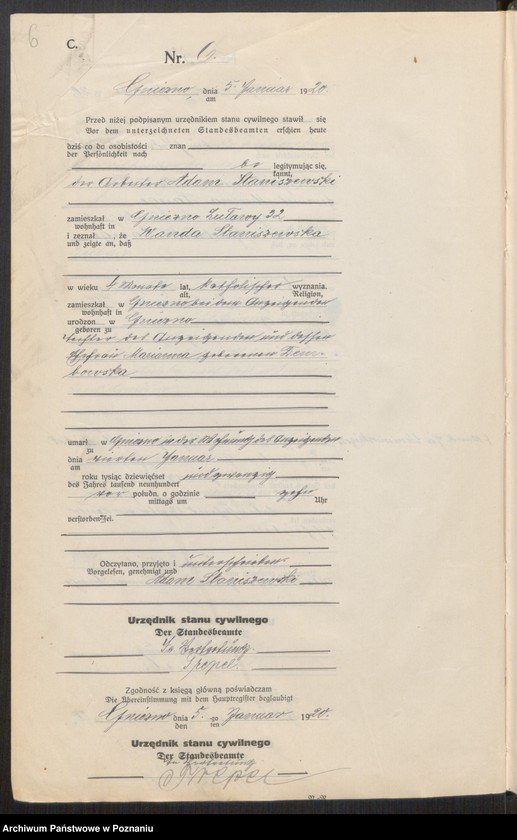 6
C.
Nr. 6.
Gniezno, dnia 5. Januar 1920.
am
Przed niżej podpisanym urzędnikiem stanu cywilnego stawił się
Vor dem unterzeichneten Standesbeamten erschien heute
dziś co do osobistości znan
der Persönlichkeit nach
be legitymując się,
kannt,
der Arbeiter Adam Staniszewski
zamieszkał w Gniezno Zuławy 22
wohnhaft in
i zeznał, że Wanda Staniszewska
und zeigte an, daß
w wieku 4 Monate lat, katholischer wyznania,
alt, Religion,
zamieszkał w Gniezno bei dem Anzeigenden
wohnhaft in
urodzon w Gniezno
geboren zu
Tochter des Anzeigenden und dessen
Ehefrau Marianna geborenen Dem-
bowska
umarł w Gniezno in der Wohnung des Anzeigenden
zu
dnia vierten Januar
am
roku tysiąc dziewięćset und zwanzig
des Jahres tausend neunhundert
vor połudn. o godzinie zehn
mittags um Uhr
verstorben sei.
Odczytano, przyjęto i unterschrieben
Vorgelesen, genehmigt und
Adam Staniszewski
Urzędnik stanu cywilnego
Der Standesbeamte
In Vertretung.
Zgodność z księgą główną poświadczam
Die Übereinstimmung mit dem Hauptregister beglaubigt
Gniezno dnia 5. go Januar 1920.
den ten
Urzędnik stanu cywilnego
Der Standesbeamte
In Vertretung
Archiwum Państwowe w Poznaniu